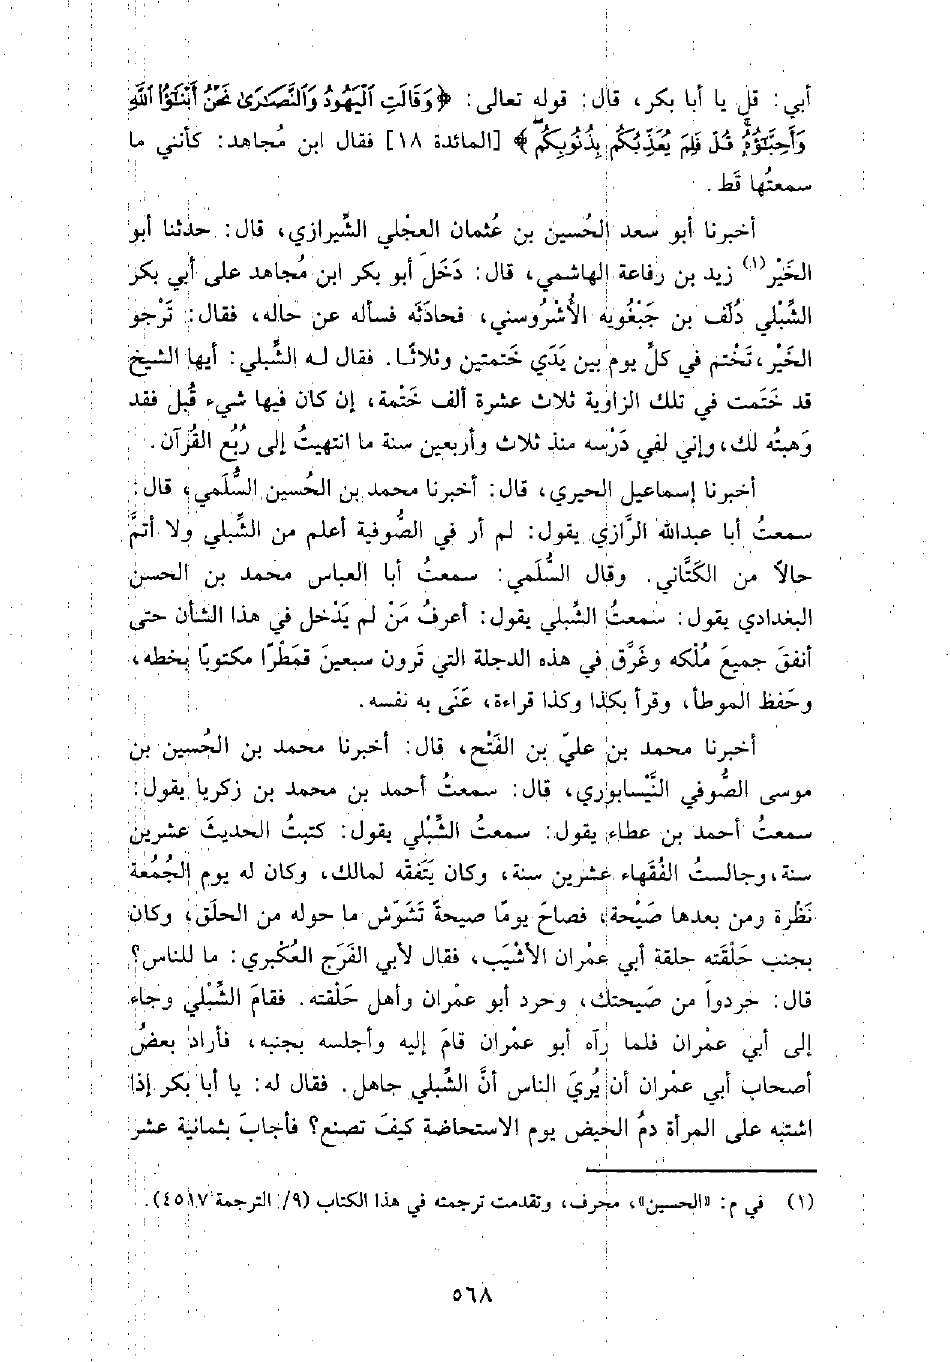 أبي: قل يا أبا بكر، قال: قوله تعالى: ﴿وَقَالَتِ الْيَهُودُ وَالنَّصَارَىٰ نَحْنُ أَبْنَاؤُا اللَّهِ
وَأَحِبَّاؤُهُ قُلْ فَلِمَ يُعَذِّبُكُم بِذُنُوبِكُم﴾ [المائدة ١٨] فقال ابن مُجاهد: كأنني ما
سمعتُها قَط.
أخبرنا أبو سعد الحُسين بن عُثمان العجْلي الشِّيرازي، قال: حدثنا أبو
الخَيْر(١) زيد بن رفاعة الهاشمي، قال: دَخَلَ أبو بكر ابن مُجاهد على أبي بكر
الشِّبْلي دُلَف بن جَبْغُويه الأُشْرُوسني، فحادَثَه فسأله عن حاله، فقال: تَرْجو
الخَيْر، تَخْتم في كلِّ يوم بين يَدَي خَتمتين وثلاثًا. فقال له الشِّبلي: أيها الشيخ
قد خَتَمت في تلك الزاوية ثلاث عشرة ألف خَتْمة، إن كان فيها شيء قُبل فقد
وَهبتُه لك، وإني لفي دَرْسه منذ ثلاث وأربعين سنة ما انتهيتُ إلى رُبُع القُرآن.
أخبرنا إسماعيل الحيري، قال: أخبرنا محمد بن الحُسين السُّلَمي، قال:
سمعتُ أبا عبدالله الرَّازي يقول: لم أر في الصُّوفية أعلم من الشِّبلي ولا أتمَّ
حالاً من الكَتَّاني. وقال السُّلَمي: سمعتُ أبا العباس محمد بن الحسن
البغدادي يقول: سمعتُ الشِّبلي يقول: أعرفُ مَنْ لم يَدْخل في هذا الشأن حتى
أنفقَ جميعَ مُلْكه وغَرَّق في هذه الدجلة التي تَرون سبعينَ قمَطْرًا مكتوبًا بخطه،
وحَفظ الموطأ، وقرأ بكذا وكذا قراءة، عَنَى به نفسه.
أخبرنا محمد بن عليّ بن الفَتْح، قال: أخبرنا محمد بن الحُسين بن
موسى الصُّوفي النَّيْسابوري، قال: سمعتُ أحمد بن محمد بن زكريا يقول:
سمعتُ أحمد بن عطاء يقول: سمعتُ الشِّبْلي يقول: كتبتُ الحديثَ عشرين
سنة، وجالستُ الفُقَهاء عشرين سنة، وكان يَتَفقه لمالك، وكان له يوم الجُمُعة
نَظْرة ومن بعدها صَيْحة، فصاحَ يومًا صيحةً تَشَوّش ما حوله من الحلَق، وكان
بجنب حَلْقَته حلقة أبي عِمْران الأشْيَب، فقال لأبي الفَرَج العُكْبري: ما للناس؟
قال: حردوا من صَيحتك، وحرد أبو عمْران وأهل حَلْقته. فقامَ الشِّبْلي وجاء
إلى أبي عمْران فلما رآه أبو عمْران قامَ إليه وأجلسه بجنبه، فأراد بعضُ
أصحاب أبي عمْران أن يُريَ الناس أنَّ الشِّبلي جاهل. فقال له: يا أبا بكر إذا
اشتبه على المرأة دمُ الحيض يوم الاستحاضة كيفَ تصنع؟ فأجابَ بثمانية عشر
(١) في م: «الحسين»، محرف، وتقدمت ترجمته في هذا الكتاب (٩/ الترجمة ٤٥١٧).
٥٦٨